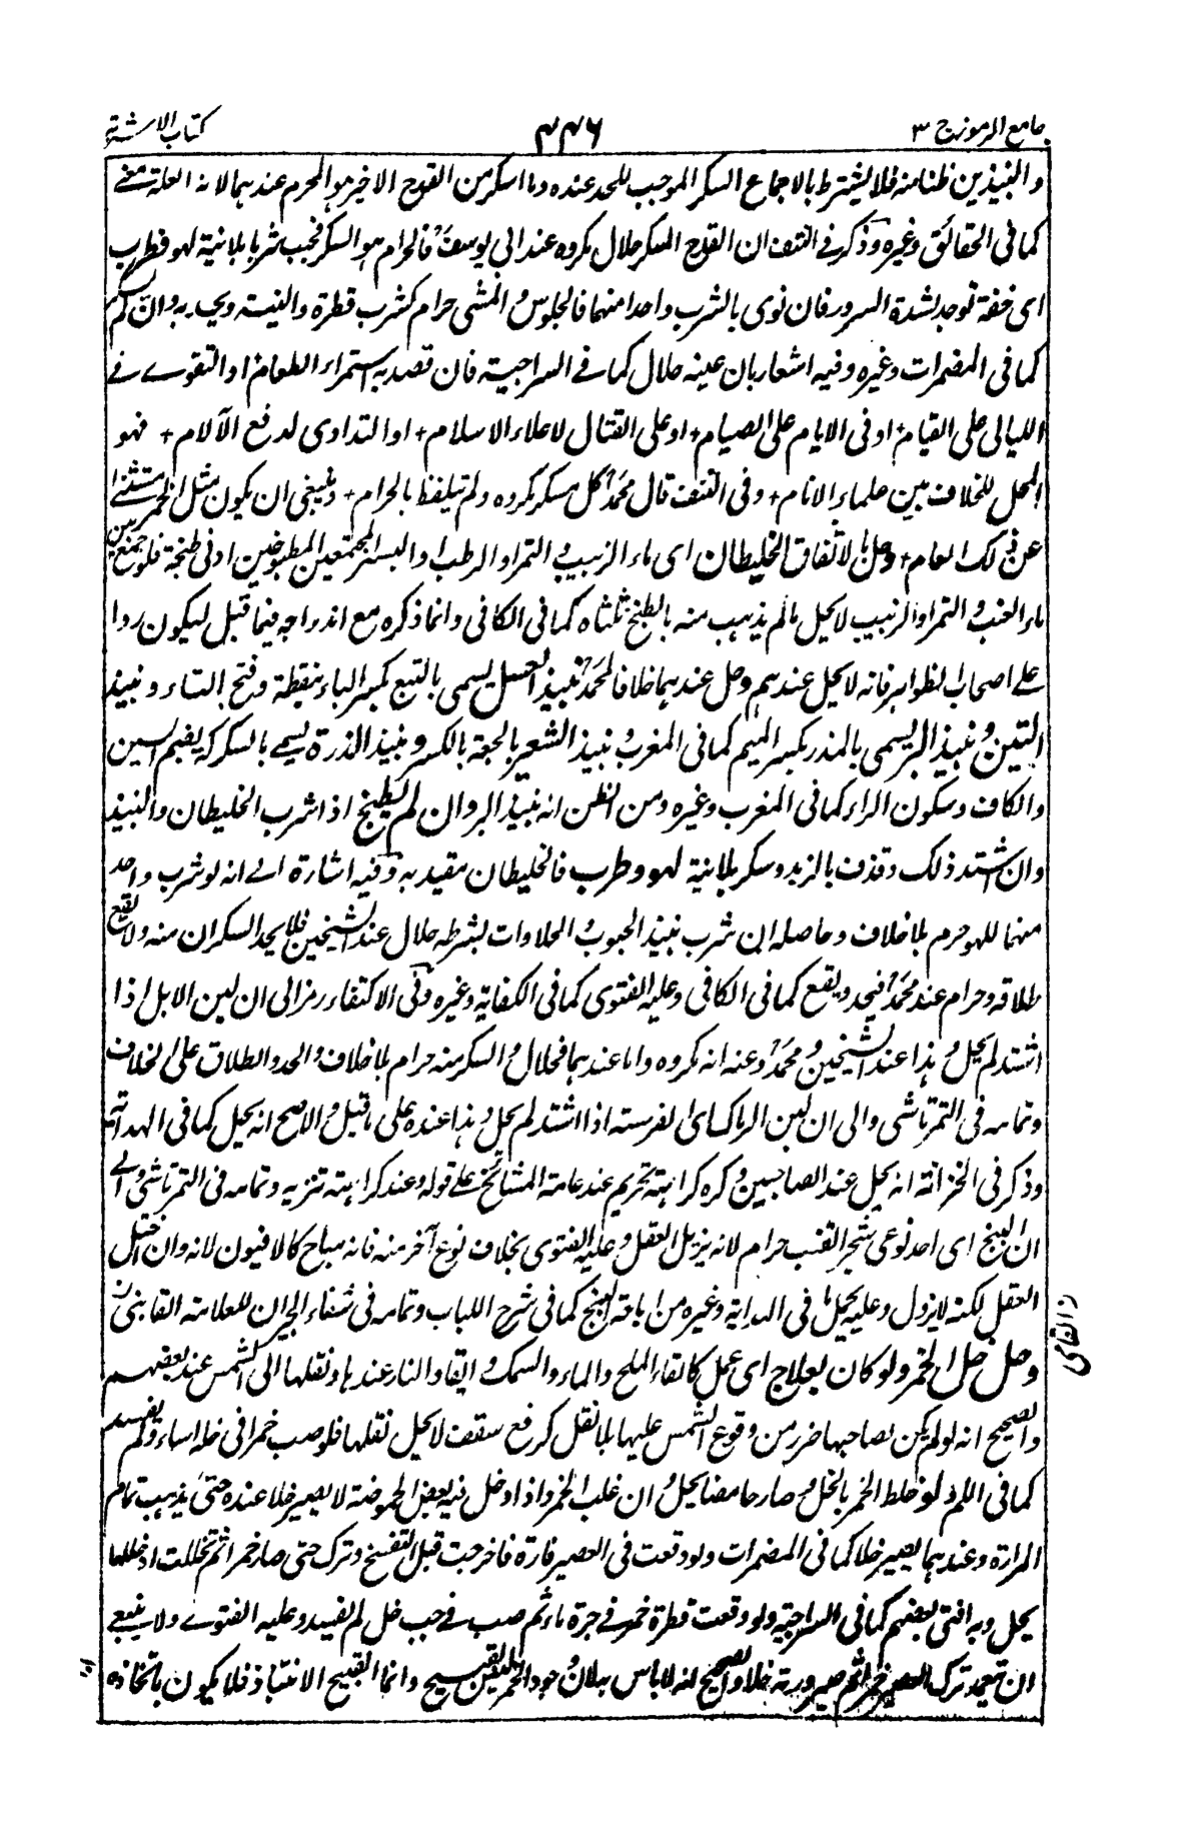 جامع الرموز ج ٣ ٤٤٦ كتاب الاشربة
والنبيذين ظنا منه فلا يشترط بالاجماع السكر الموجب للحد عنده وما اسكر من القدح الاخير هو المحرم عندهما لانه العلة معنى
كما فى الحقائق وغيره وذكر فى النتف ان القدح المسكر حلال مكروه عند ابى يوسف فالحرام هو السكر فيجب شربها بلا نية لهو وطرب
اى خفة توجد لشدة السرور فان نوى بالشرب واحدا منهما فالجلوس والمشى حرام كشرب قطرة والنية ويحد به وان لم يسكر
كما فى المضمرات وغيره وفيه اشعار بان عينه حلال كما فى السراجية فان قصد به استمراء الطعام او التقوى فى
الليالى على القيام او فى الايام على الصيام او على القتال لاعلاء الاسلام او التداوى لدفع الآلام فهو
المحل للخلاف بين علماء الانام وفى النتف قال محمد كل مسكر مكروه ولم يتلفظ بالحرام وينبغى ان يكون مثل الخمر مستثنى
عن ذلك العام وحل بالاتفاق الخليطان اى ماء الزبيب والتمر او الرطب او البسر المجتمعين المطبوخين ادنى طبخة فلو جمع بين
ماء العنب والتمر او الزبيب لا يحل مالم يذهب منه بالطبخ ثلثاه كما فى الكافى وانما ذكره مع اندراجه فيما قبل ليكون ردا
على اصحاب الظواهر فانه لا يحل عندهم وحل عندهما خلافا لمحمد نبيذ العسل يسمى بالبتع بكسر الباء بنقطة وفتح التاء ونبيذ
التين ونبيذ البر يسمى بالمذر بكسر الميم كما فى المغرب ونبيذ الشعير بالجعة بالكسر ونبيذ الذرة يسمى بالسكركه بضم السين
والكاف وسكون الراء كما فى المغرب وغيره ومن الظن انه نبيذ البر وان لم يطبخ اذا شرب الخليطان والنبيذ
وان اشتد ذلك وقذف بالزبد وسكر بلا نية لهو وطرب فالخليطان مقيد به وفيه اشارة الى انه لو شرب واحد
منهما للهو حرم بلا خلاف وحاصله ان شرب نبيذ الحبوب والحلاوات بشرطه حلال عند الشيخين فلا يحد السكران منه ولا يقع
طلاقه وحرام عند محمد فيحد ويقع كما فى الكافى وعليه الفتوى كما فى الكفاية وغيره وفى الاكتفاء رمز الى ان لبن الابل اذا
اشتد لم يحل وهذا عند الشيخين ومحمد وعنه انه مكروه واما عندهما فحلال والسكر منه حرام بلا خلاف والحد والطلاق على الخلاف
وتمامه فى التمرتاشى والى ان لبن الرماك اى الفرسة اذا اشتد لم يحل وهذا عنده على ما قيل والاصح انه يحل كما فى الهداية
وذكر فى الخزانة انه يحل عند الصاحبين وكره كراهة تحريم عند عامة المشائخ على قوله وعند كراهة تنزيه وتمامه فى التمرتاشى والى
ان البنج اى احد نوعى شجر القنب حرام لانه يزيل العقل وعليه الفتوى بخلاف نوع آخر منه فانه مباح كالافيون لانه وان اختل
العقل لكنه لا يزول وعليه يحمل ما فى الهداية وغيره من اباحة البنج كما فى شرح اللباب وتمامه فى شفاء الجران للعلامة القاينى
وحل خل الخمر ولو كان بعلاج اى عمل كالقاء الملح والماء والسمك وايقاد النار عندها ونقلها الى الشمس عند بعضهم
والصحيح انه لو لم يكن لصاحبها ضرر من وقوع الشمس عليها بلا نقل كرفع سقف لا يحل نقلها فلو صب خمرا فى خله اساء ولم يفسد
كما فى اللمم لو خلط الخمر بالخل وصار حامضا يحل وان غلب الخمر واذا دخل فيه بعض الحموضة لا يصير خلا عنده حتى يذهب تمام
المرارة وعندهما يصير خلا كما فى المضمرات ولو وقعت فى العصير فارة فاخرجت قبل التفسخ وترك حتى صار خمرا ثم تخللت او خللها
يحل وبه افتى بعضهم كما فى السراجية ولو وقعت قطرة خمر فى جرة ماء ثم صب فى حب خل لم يفسد وعليه الفتوى ولا ينبغى
ان يتعمد ترك العصير خمرا ثم صيرورته خلا والصحيح انه لا باس به لان وجود الخمر ليس بقبيح وانما القبيح الانتباذ فلا يكون باتخاذه